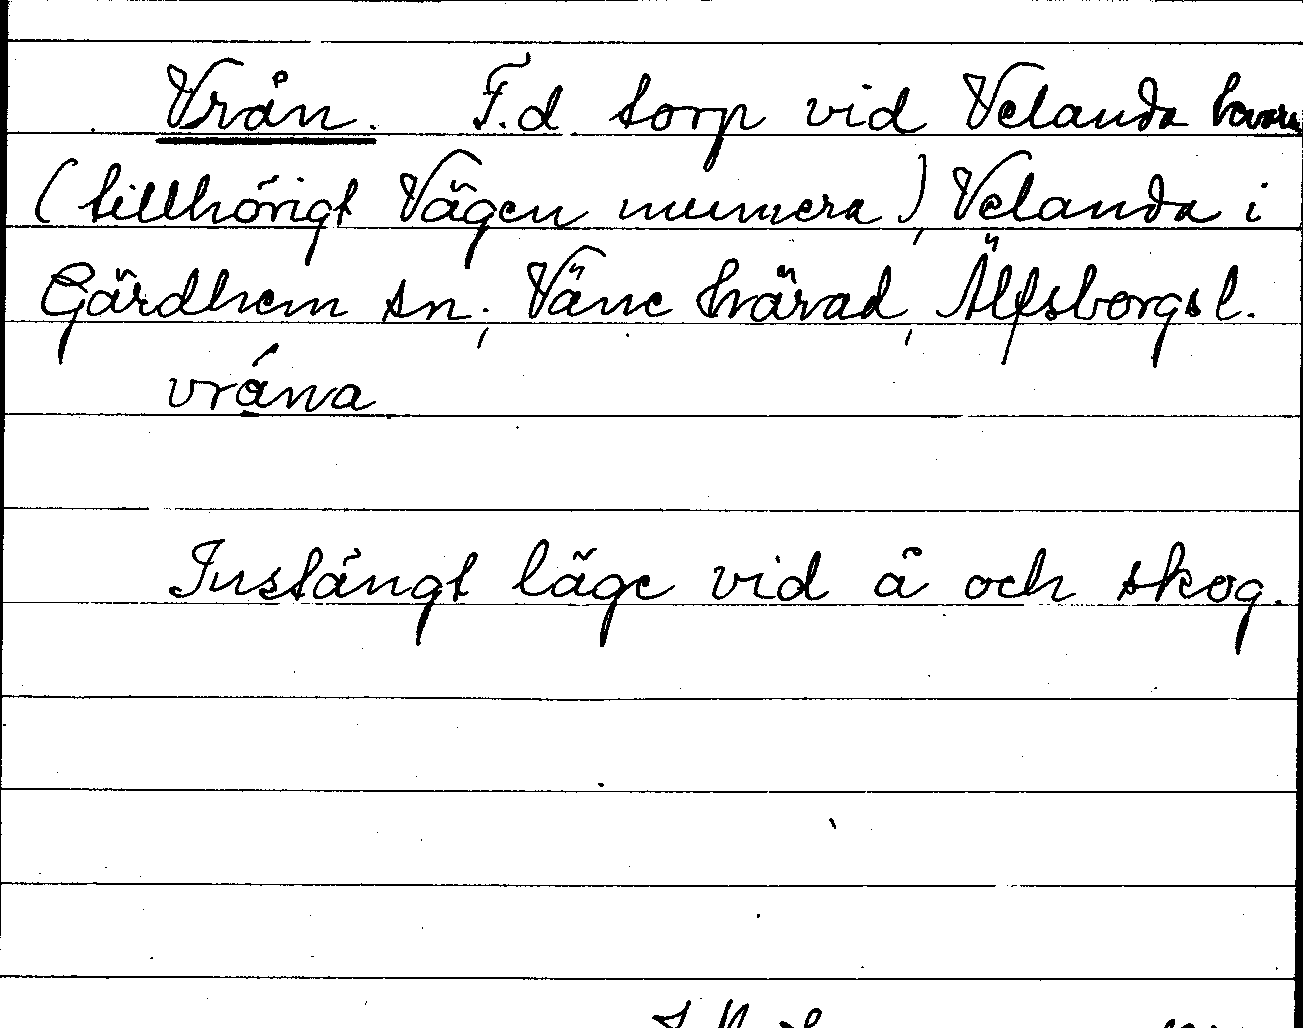 Vrån. F.d. torp vid Velanda kvarn
(tillhörigt Vägen numera), Velanda i
Gärdhem sn, Väne härad, Älfsborgs l.
vrána
Instängt läge vid å och skog.